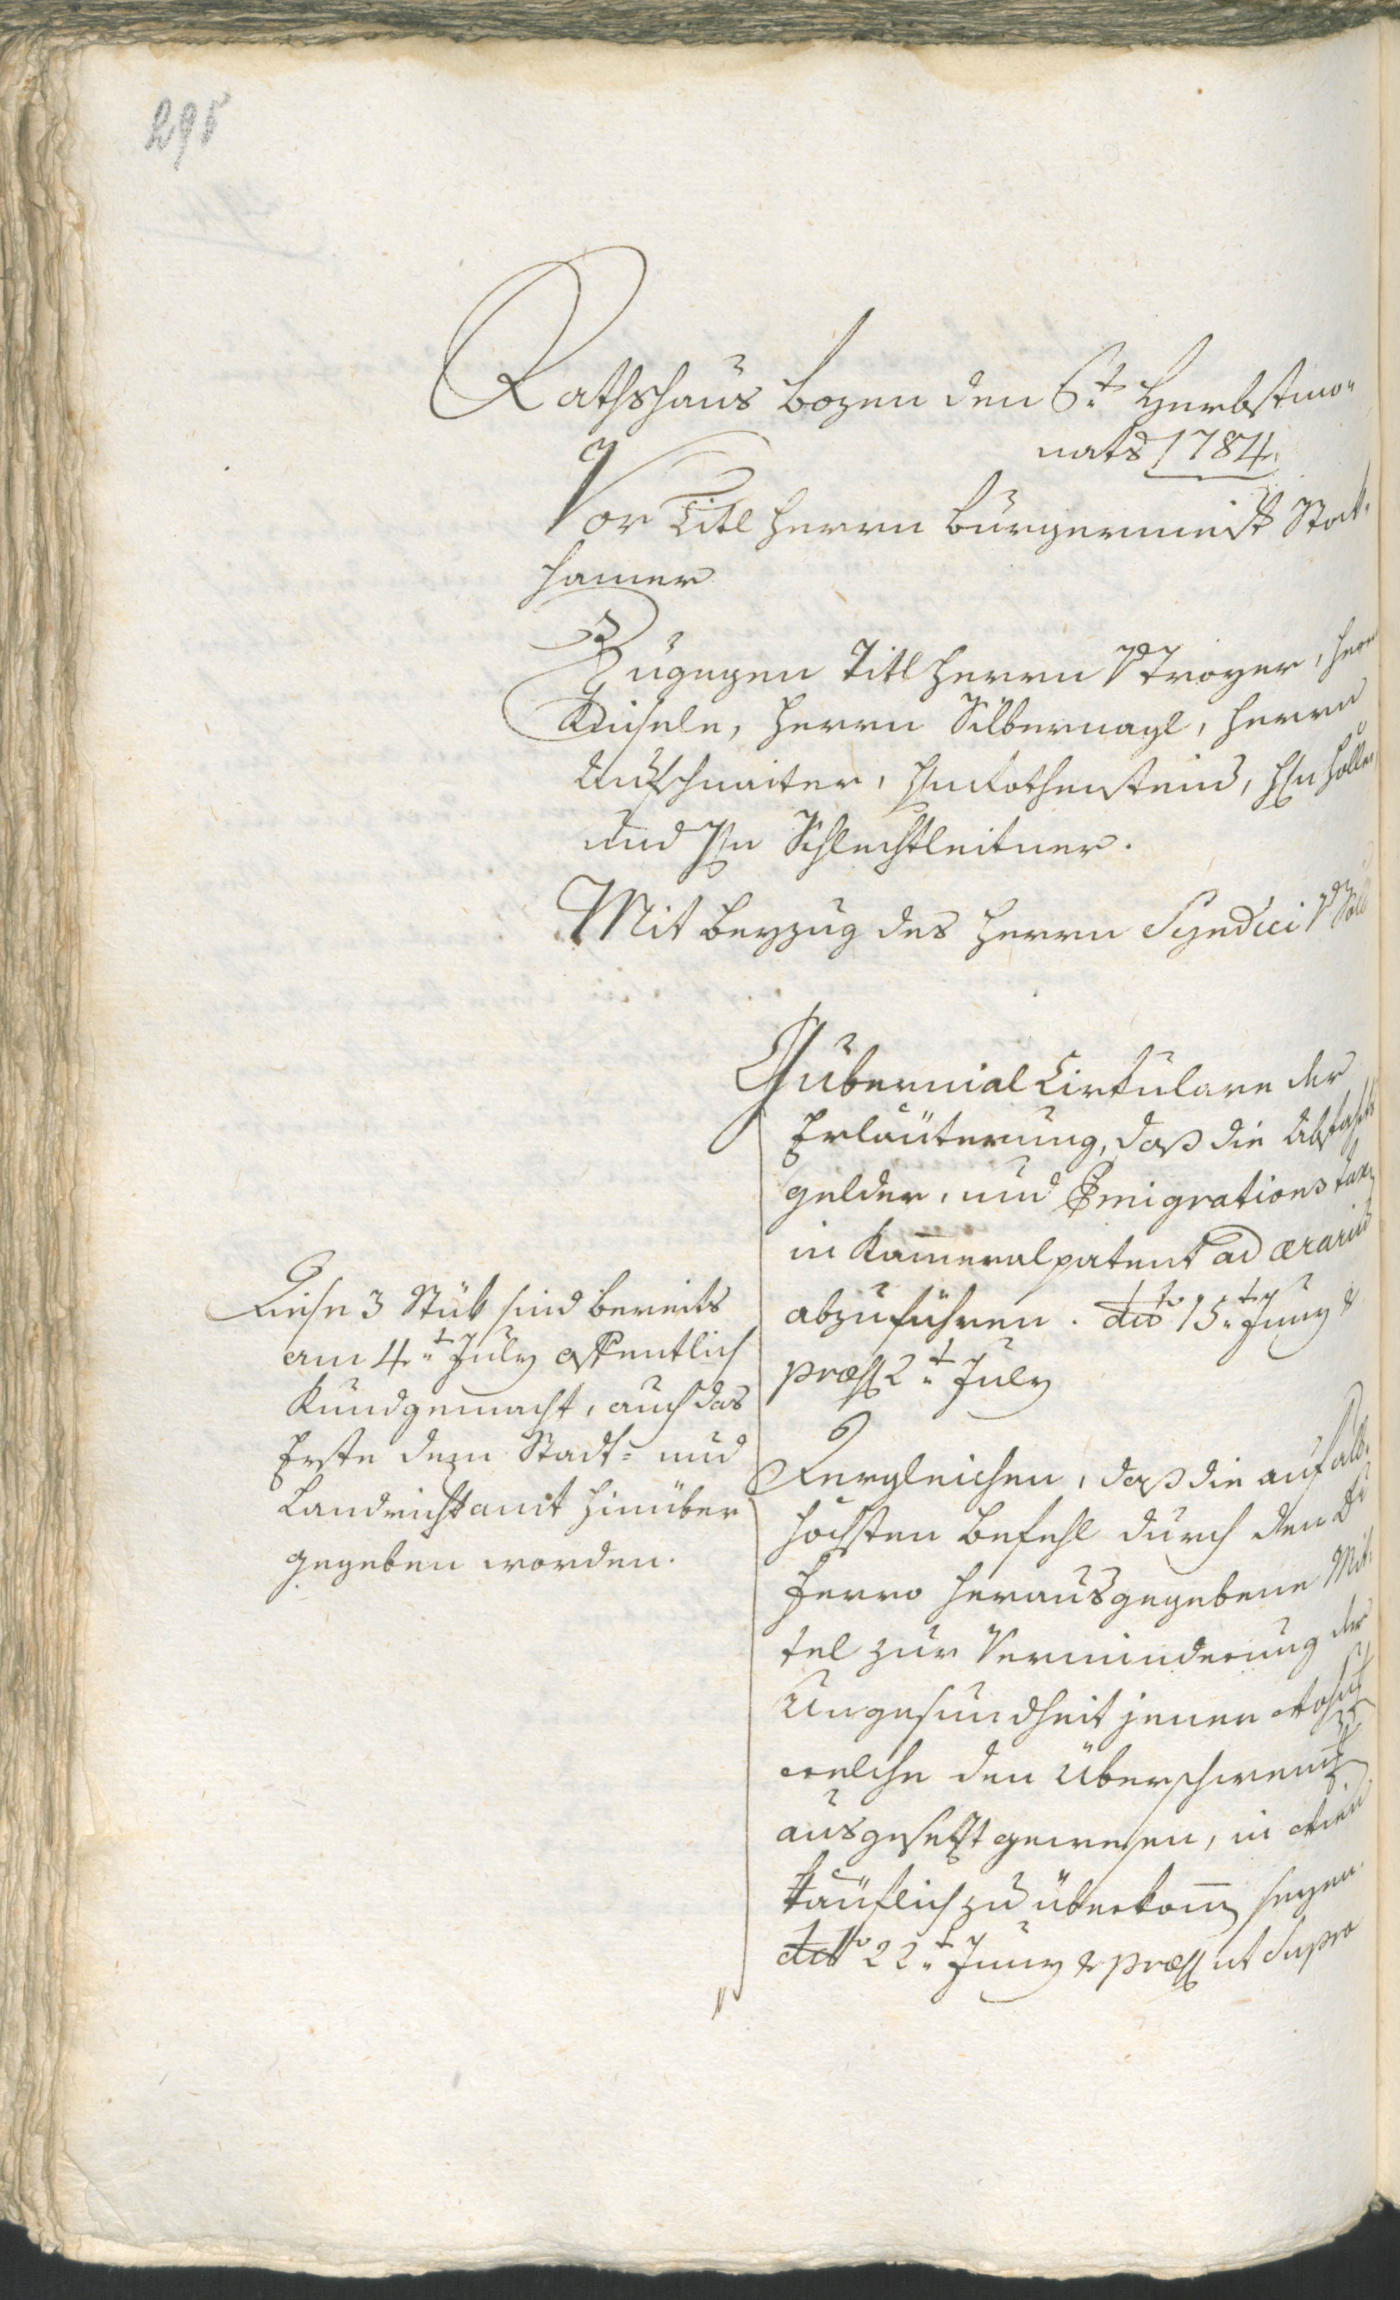 295
Rathshaus Bozen den 6.t Herbstmo-
nats 1784.
Vor Titl Herrn Burgermeistr Stock-
hamer
Zugegen Titl Herrn v Troyer, Herrn
Kuisele, Herrn Silbernagl, Herrn
Aufschnaiter, Hrn Rothenstein, Hrn Holler
und Hrn Schlechtleitner.
Mit beyzug des Herrn Syndici v
Gubernial Cirkulare der
Erläuterung, daß die Abfahrts
gelder, und Emigrations tax
in Kameralpatent ad ærariu
abzuführen. dto 15.t Juny &
præs 2.t July
Diese 3 Stük sind bereits
am 4.t July offentlich
Kundgemacht, auch das
Erste dem Stadt- und
Landrichtamt hinüber
gegeben worden.
Dergleichen, daß die auf all-
höchsten Befehl durch den Dr
Ferro herausgegebene Mit-
tel zur Verminderung der
Ungesundheit jener Wohn
welche den Überschwem
ausgesetzt gewesen, in Wien
käuflich zu überkom seyen.
dto 22.t Juny & præs ut Supra